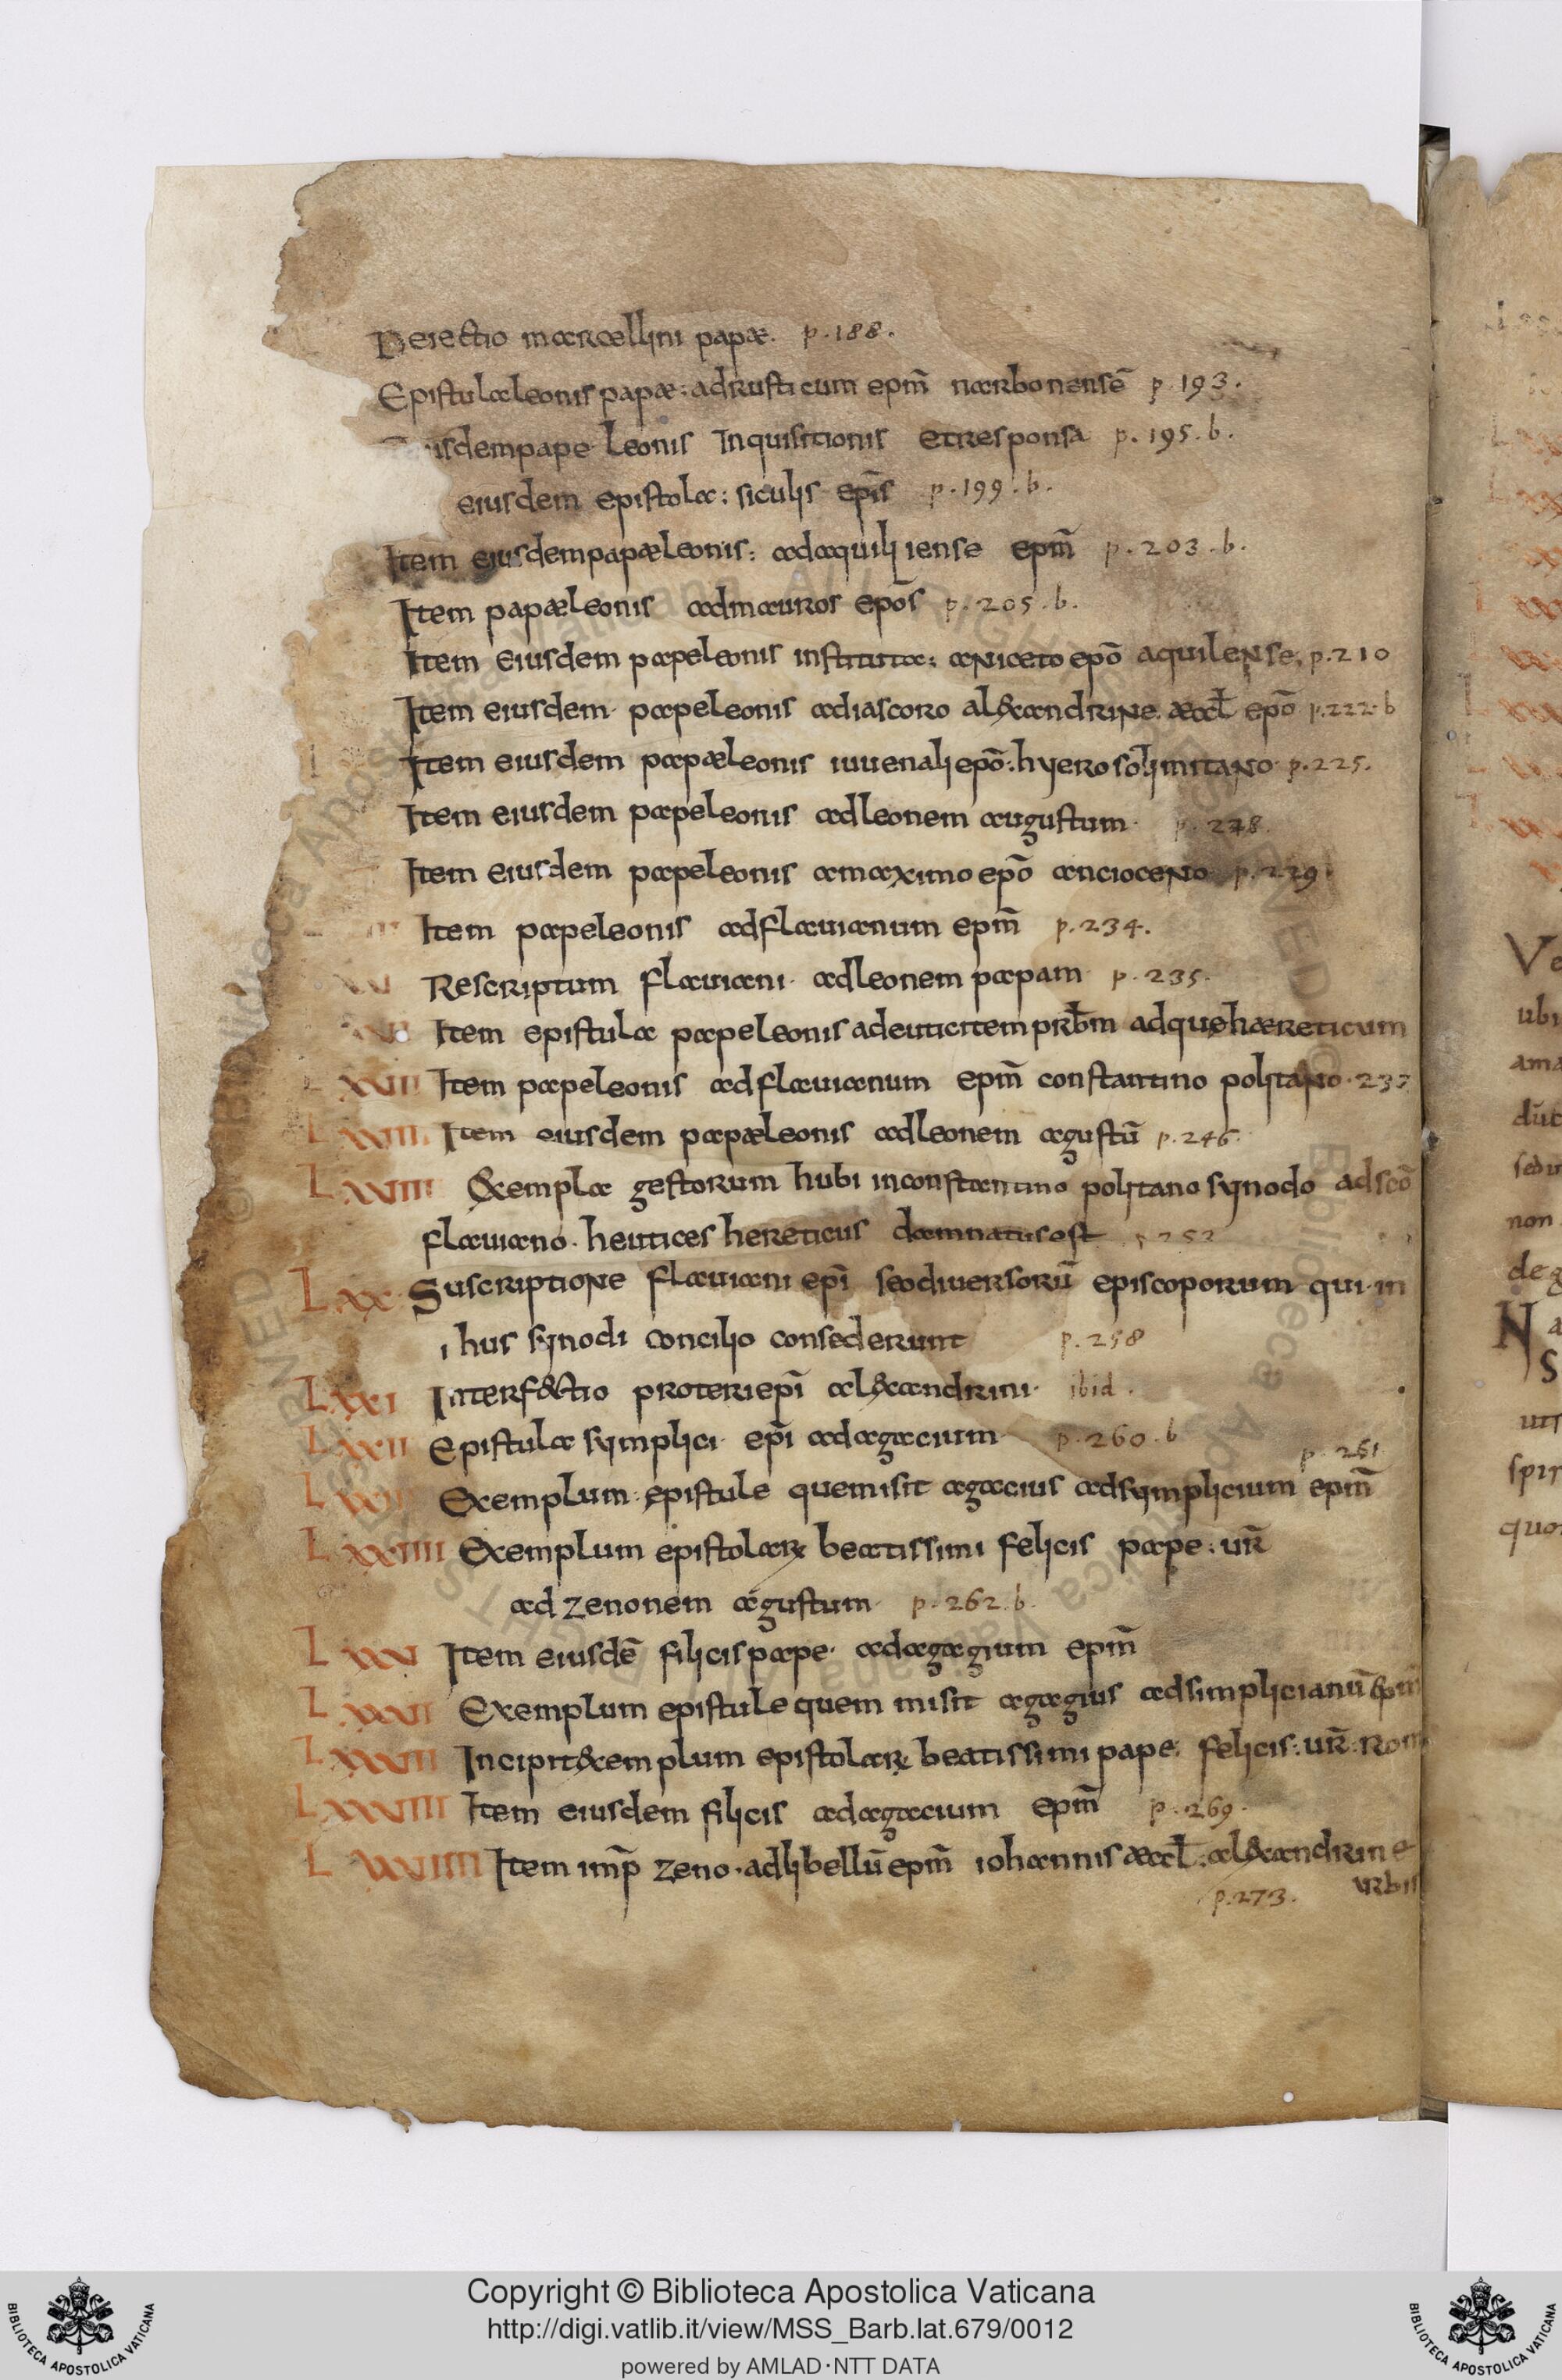 Deiectio marcellini papæ. p. 188.
Epistula leonis papæ: ad rusticum epm̄ narbonensē p. 193.
iusdem pape leonis Inquisitionis et responsa p. 195. b.
eiusdem epistola: siculis ep̄is p. 199. b.
Item eiusdem papæ leonis: ad aquiliiense epm̄ p. 203. b.
Item papæ leonis ad mauros epōs p. 205. b.
Item eiusdem pape leonis instituta: a niceto epō aquilense, p. 210
Item eiusdem pape leonis a diascoro alexandrine. æccł epō p. 222. b
Item eiusdem papæ leonis iuuenali epō: hyerosolimitano p. 225.
Item eiusdem pape leonis ad leonem augustum p. 228.
Item eiusdem pape leonis a maximo epō ancioceno p. 229.
Item pape leonis ad flauianum epm̄ p. 234.
Rescriptum flauiani ad leonem papam p. 235.
Item epistula pape leonis ad euticitem prb̄m adque hæreticum
LXVII Item pape leonis ad flauianum epm̄ constantino politano. 237
LXVIII Item eiusdem papæ leonis ad leonem agustū p. 246.
LXVIIII Exempla gestorum hubi in constantino politano synodo ad scō
flauiano. heutices hereticus damnatus est 252
LXX Suscriptione flauiani ep̄i seo diuersorū episcoporum qui in
hus synodi concilio consederunt p. 258
LXXI Interfectio proteri ep̄i alexandrini ibid.
LXXII Epistula symplici ep̄i ad agacium p. 260. b
p. 261
Exemplum epistule quem misit agacius ad symplicium epm̄
LXXIIII Exemplum epistolar beatissimi felicis pape: ur̄
ad zenonem agustum p. 262. b.
LXXV Item eiusdē filicis pape ad agagium epm̄
LXXVI Exemplum epistule quem misit agagius ad simplicianū epm̄
LXXVII Incipit exemplum epistolar beatissimi pape. felicis: ur̄: rom
LXXVIII Item eiusdem filicis ad agacium epm̄ p. 269.
LXXVIIII Item imp̄ zeno. ad libellū epm̄ iohannis æccł: alexandrine
urbis
p. 273.
Copyright © Biblioteca Apostolica Vaticana
http://digi.vatlib.it/view/MSS_Barb.lat.679/0012
powered by AMLAD·NTT DATA
BIBLIOTECA APOSTOLICA VATICANA
BIBLIOTECA APOSTOLICA VATICANA